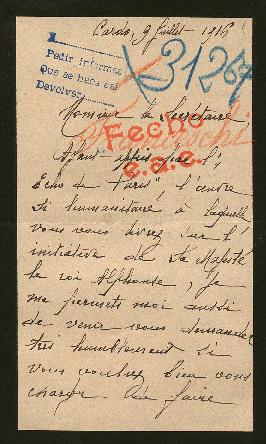 Cardo, 9 Juillet 1915
Pedir informes
Que se haga así
Devolver
3126
Monsieur le Secrétaire
Fecho
e.a.c.
Ayant appris par l'
Echo de Paris, l'œuvre
si humanitaire à laquelle
vous vous livrez sur l'
initiative de Sa Majesté
le roi Alphonse, je
me permets moi aussi
de venir vous demander
très humblement si
vous voudriez bien vous
charger de faire